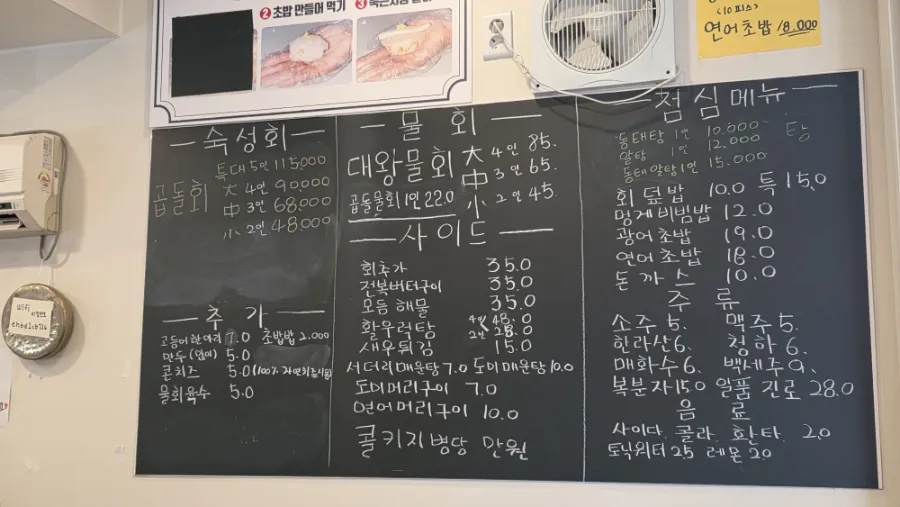 ② 초밥 만들어 먹기
③
<10피스>
연어초밥 18.000
숙성회
특대 5인 115,000
곱돌회 大 4인 90,000
中 3인 68,000
小 2인 48,000
추가
고등어 한마리 7.0 초밥밥 2.000
만두(잎이) 5.0
콘치즈 5.0 (100% 자연치즈사용)
물회육수 5.0
물회
대왕물회 大 4인 85.
中 3인 65.
小 2인 45.
곱돌물회 1인 22.0
사이드
회추가 35.0
전복버터구이 35.0
모듬해물 35.0
활우럭탕 4인 48.0
2인 28.0
새우튀김 15.0
서더리매운탕 7.0 도미매운탕 10.0
도미머리구이 7.0
연어머리구이 10.0
콜키지 병당 만원
점심메뉴
동태탕 1인 10.000
알탕 1인 12.000
동태알탕 1인 15.000
탕
회덮밥 10.0 특 15.0
멍게비빔밥 12.0
광어초밥 19.0
연어초밥 18.0
돈까스 10.0
주류
소주 5. 맥주 5.
한라산 6. 청하 6.
매화수 6. 백세주 9.
복분자 15.0 일품진로 28.0
음료
사이다. 콜라. 환타. 2.0
토닉워터 2.5 레몬 2.0
wifi